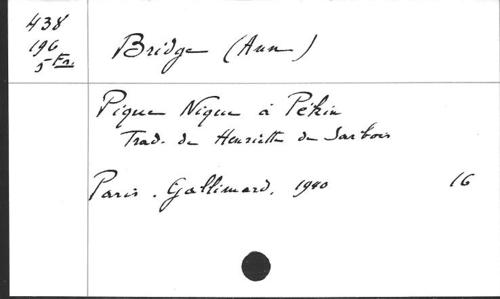 438
196
5 Fr.
Bridge (Ann)
Pique Nique à Pékin
Trad. de Henriette de Sarbois
Paris. Gallimard. 1940 16